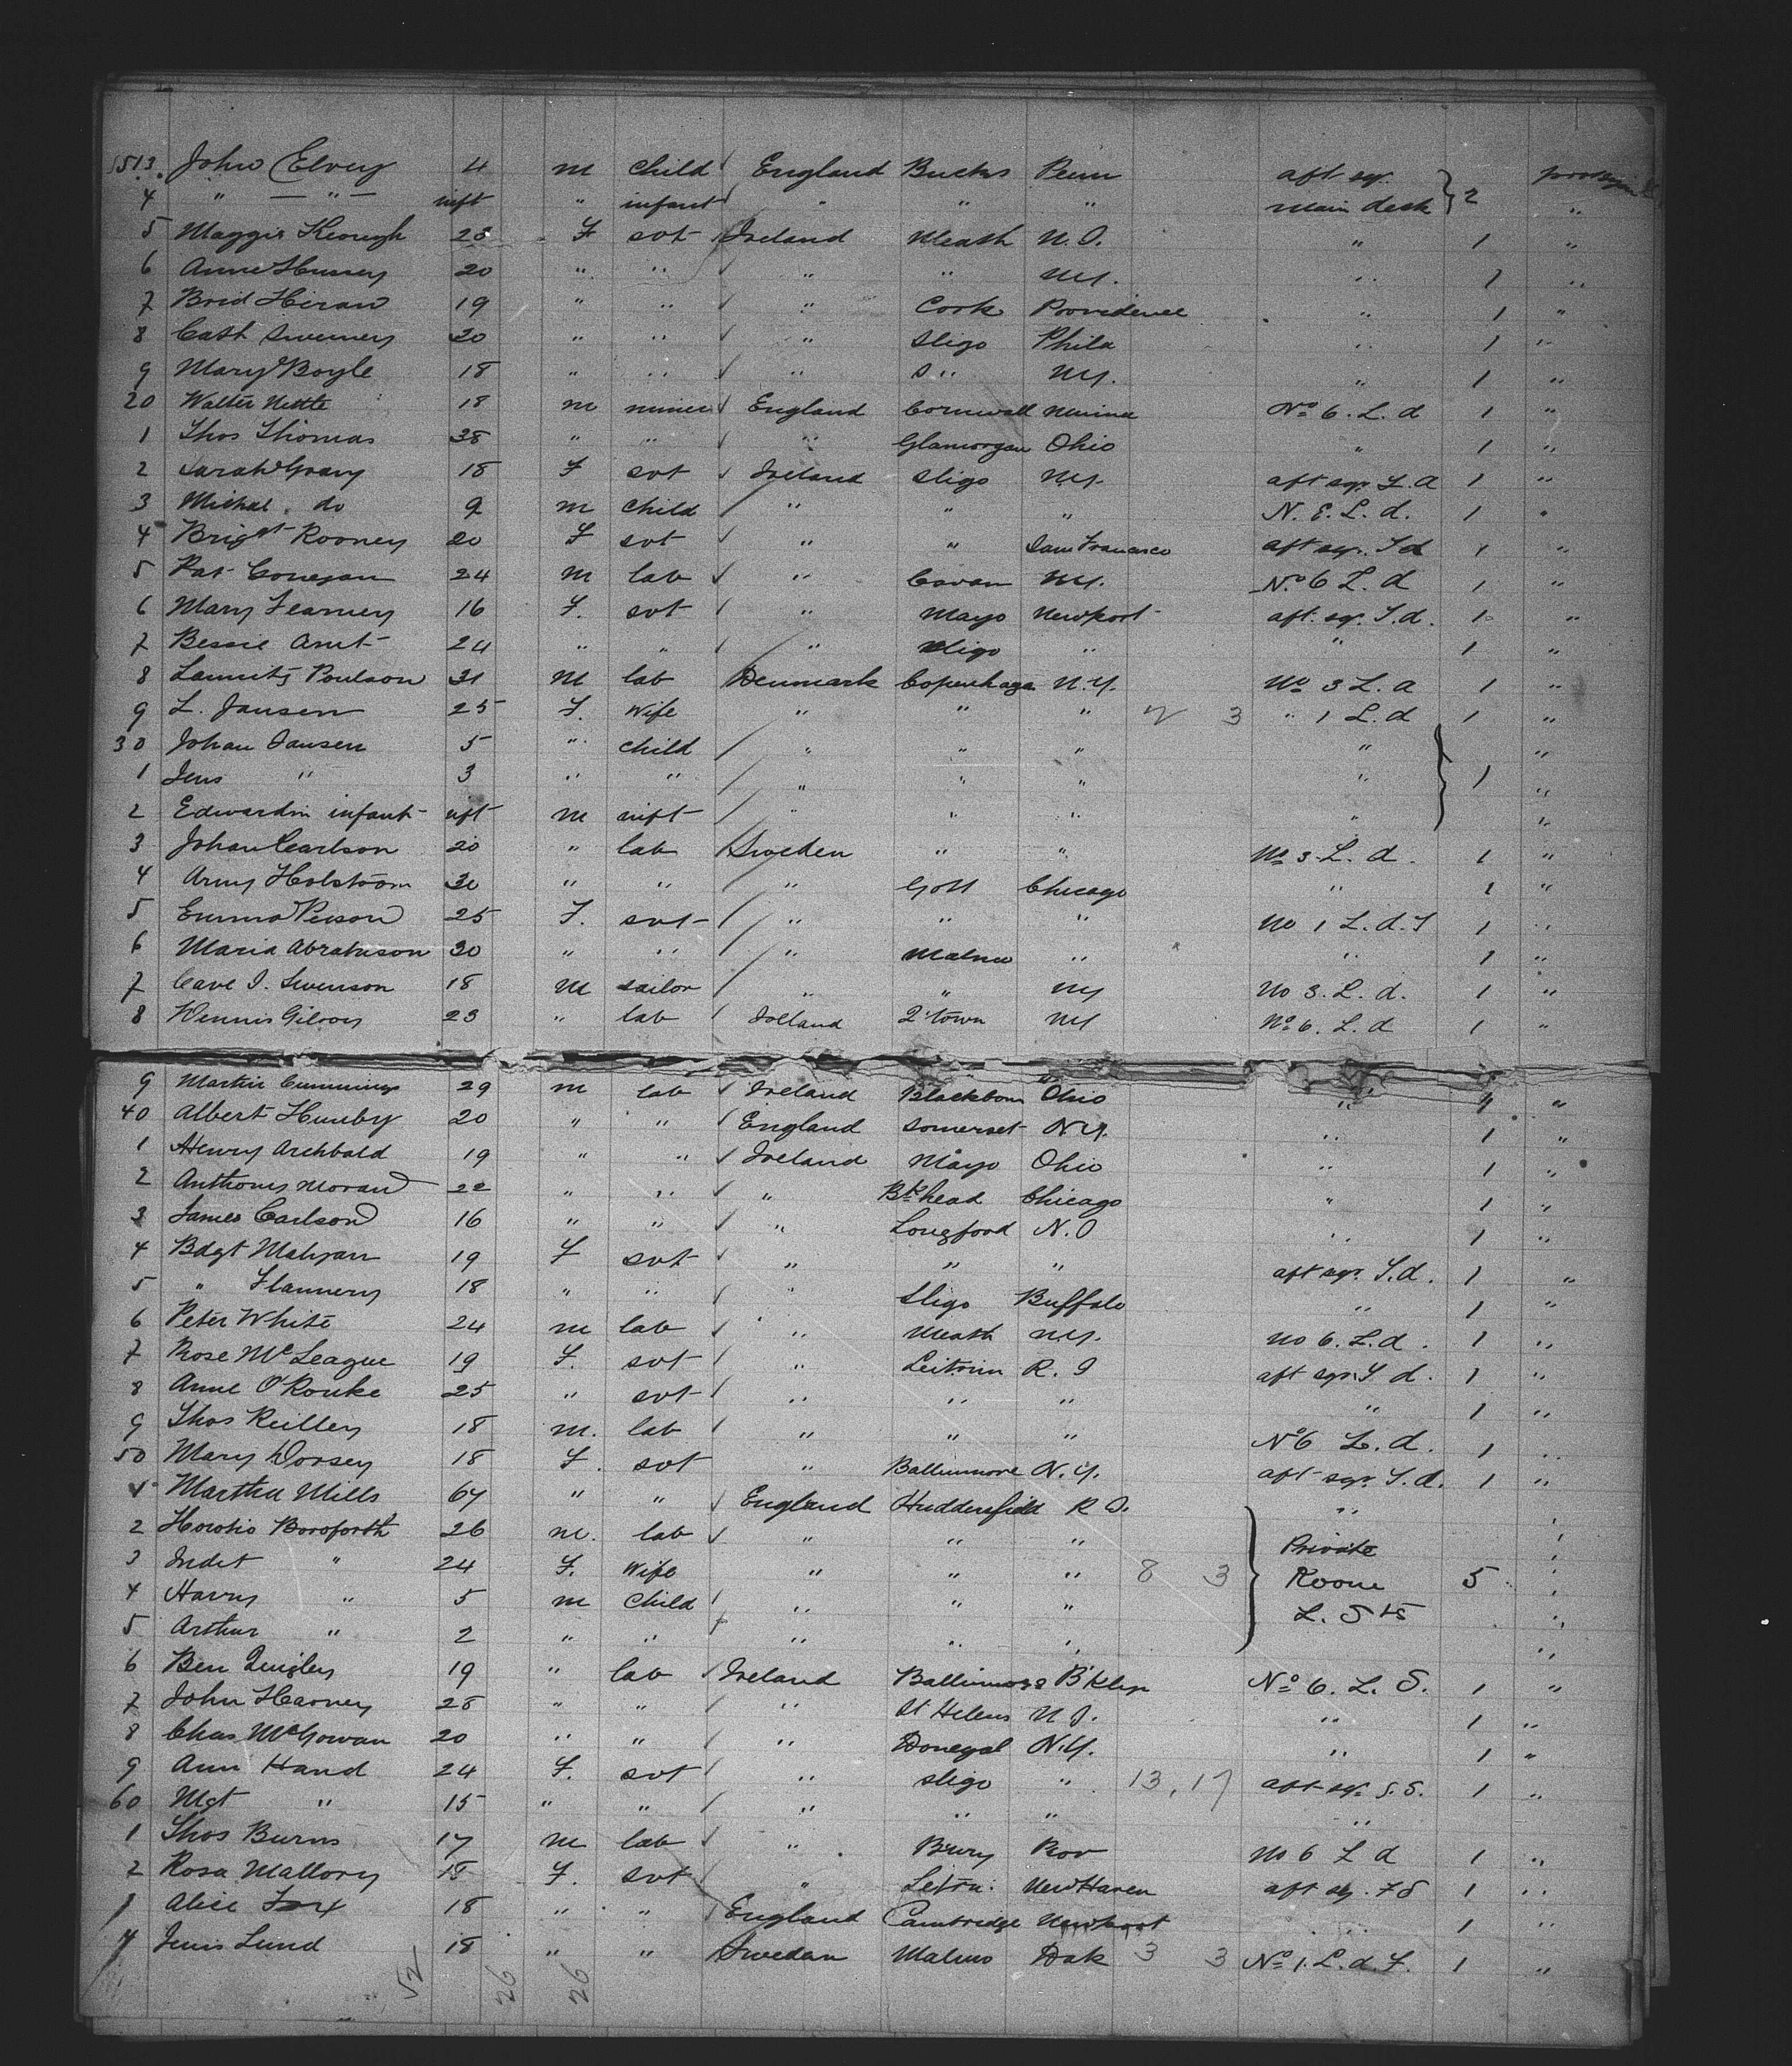 513. John Elvey 4 m child England Bucks Penn aft sq. 2
4 " — " — inft " infant " " " main deck "
5 Maggie Keough 25 F svt Ireland Meath N.O. " 1 "
6 Anne Hussey 20 " " " " NY. " 1 "
7 Brid Hiran 19 " " " Cork Providence " 1 "
8 Cath Sweeney 20 " " " Sligo Phila " 1 "
9 Mary Boyle 18 " " " S " NY. " 1 "
20 Walter Nettle 18 m miner England Cornwall No 6. L. d 1 "
1 Thos Thomas 38 " " " Glamorgan Ohio " 1 "
2 Sarah Grany 18 F svt Ireland Sligo NY. aft sqr. L. d 1 "
3 Micheal. do 9 m child " " " N. E. L. d. 1 "
4 Brigt Rooney 20 F svt " " San Francisco aft sqr. S d 1 "
5 Pat Conegan 24 m lab " Cavan NY. No 6 L. d 1 "
6 Mary Fearney 16 F. svt " Mayo Newport aft. sqr. S. d. 1 "
7 Bessie Arnt 24 " " " Sligo " " 1 "
8 Lauritz Poulson 31 M lab Denmark Copenhagn N.Y. No 3 L. d 1 "
9 L. Jansen 25 F. Wife " " " 2 3 " 1 L. d 1 "
30 Johan Jansen 5 " child " " " " "
1 Jens " 3 " " " " " " 1 "
2 Edwardin infant inft m inft " " " " "
3 Johan Carlson 20 " lab Sweden " " No 3. L. d. 1 "
4 Arny Holstrom 30 " " " Gott Chicago " 1 "
5 Emma Person 25 F. svt " " " No 1 L. d. F 1 "
6 Maria Abrahmson 30 " " " Malmo " " 1 "
7 Carl I. Swenson 18 m sailor " " NY No 3. L. d. 1 "
8 Dennis Gilroy 23 " lab Ireland Q'town NY No 6. L. d 1 "
9 Martin Cummings 29 m lab Ireland Blackburn Ohio " 1 "
40 Albert Hunby 20 " " England Somerset N.Y. " 1 "
1 Henry Archbald 19 " " Ireland Mayo Ohio " 1 "
2 Anthony Moran 22 " " " Bkhead Chicago " 1 "
3 James Carlson 16 " " " Longford N.O " 1 "
4 Bdgt Mahyan 19 F svt " " " aft sqr. S. d. 1 "
5 " Flannery 18 " " " Sligo Buffalo " 1 "
6 Peter White 24 m lab " Meath NY. No 6. L. d. 1 "
7 Rose McLeague 19 F. svt " Leitrim R. I aft sqr. S d. 1 "
8 Anne O'Rouke 25 " svt " " " " 1 "
9 Thos Reilley 18 m. lab " " " No 6 L. d. 1 "
50 Mary Dorsey 18 F. svt " Ballinmore N.Y. aft sqr. S. d. 1 "
1 Martha Mills 67 " " England Huddersfield R I. " "
2 Horotio Boroforth 26 m. lab " " " Private "
3 Indet " 24 F. Wife " " " 8 3 Room 5 "
4 Harry " 5 m Child " " " L. S "
5 Arthur " 2 " " " " " "
6 Ben Quigley 19 " lab Ireland Ballinmore B'klyn No 6. L. S. 1 "
7 John Harney 28 " " " St Helens N J. " 1 "
8 Chas McGowan 20 " " " Donegal N.Y. " 1 "
9 Ann Hand 24 F. svt " Sligo " 13, 17 aft sq. S. S. 1 "
60 Mgt " 15 " " " " " "
1 Thos Burns 17 m lab " Bury Prov No 6 L d 1 "
2 Rosa Mallory 18 F. svt " Leitm. New Haven aft sq. F S 1 "
Alice Fox 18 " " England Cambridge Newport " 1 "
4 Jenis Lund 18 " " Sweden Malmo Dak 3 3 No 1. L. d. F. 1 "
52 26 26